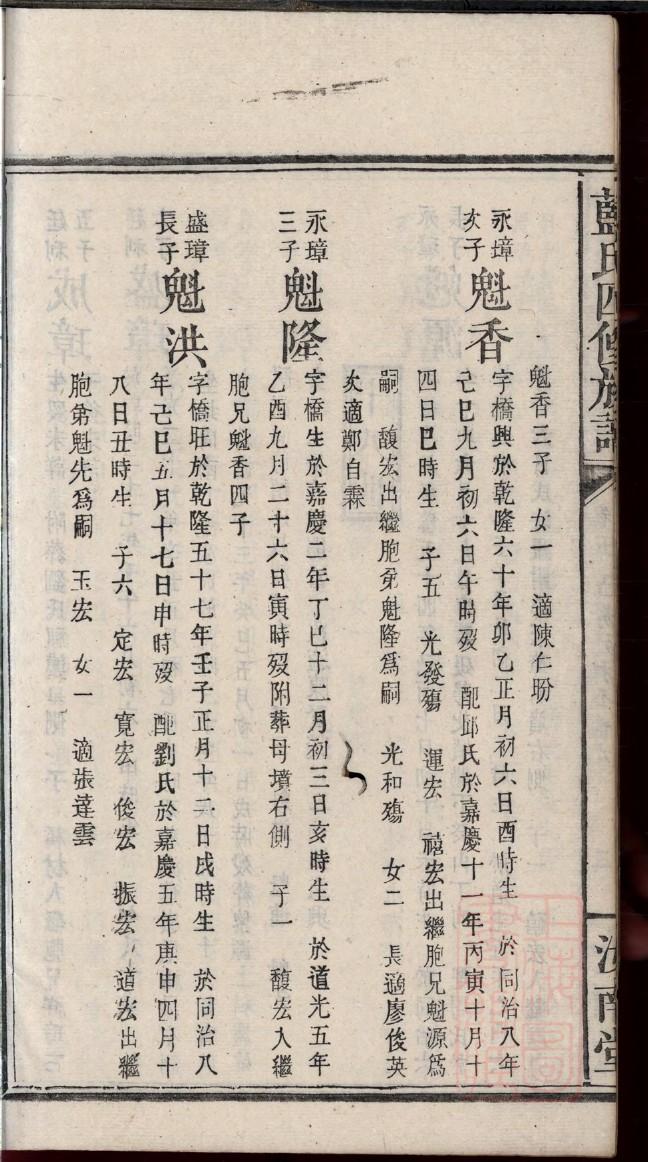 藍氏四修族譜
汝南堂
魁香三子　女一　適陳仁盼
永璋次子魁香
字橋興於乾隆六十年卯乙正月初六日酉時生　於同治八年
己巳九月初六日午時歿　配邱氏於嘉慶十一年丙寅十月十
四日巳時生　子五　光發殤　運宏　禧宏出繼胞兄魁源為
嗣　馥宏出繼胞弟魁隆為嗣　光和殤　女二　長適廖俊英
次適鄭自霖
永璋三子魁隆
字橋生於嘉慶二年丁巳十二月初三日亥時生　於道光五年
乙酉九月二十六日寅時歿附葬母墳右側　子一　馥宏入繼
胞兄魁香四子
盛璋長子魁洪
字橋旺於乾隆五十七年壬子正月十二日戌時生　於同治八
年己巳五月十七日申時歿　配劉氏於嘉慶五年庚申四月十
八日丑時生　子六　定宏　寬宏　俊宏　振宏　道宏出繼
胞弟魁先為嗣　玉宏　女一　適張達雲